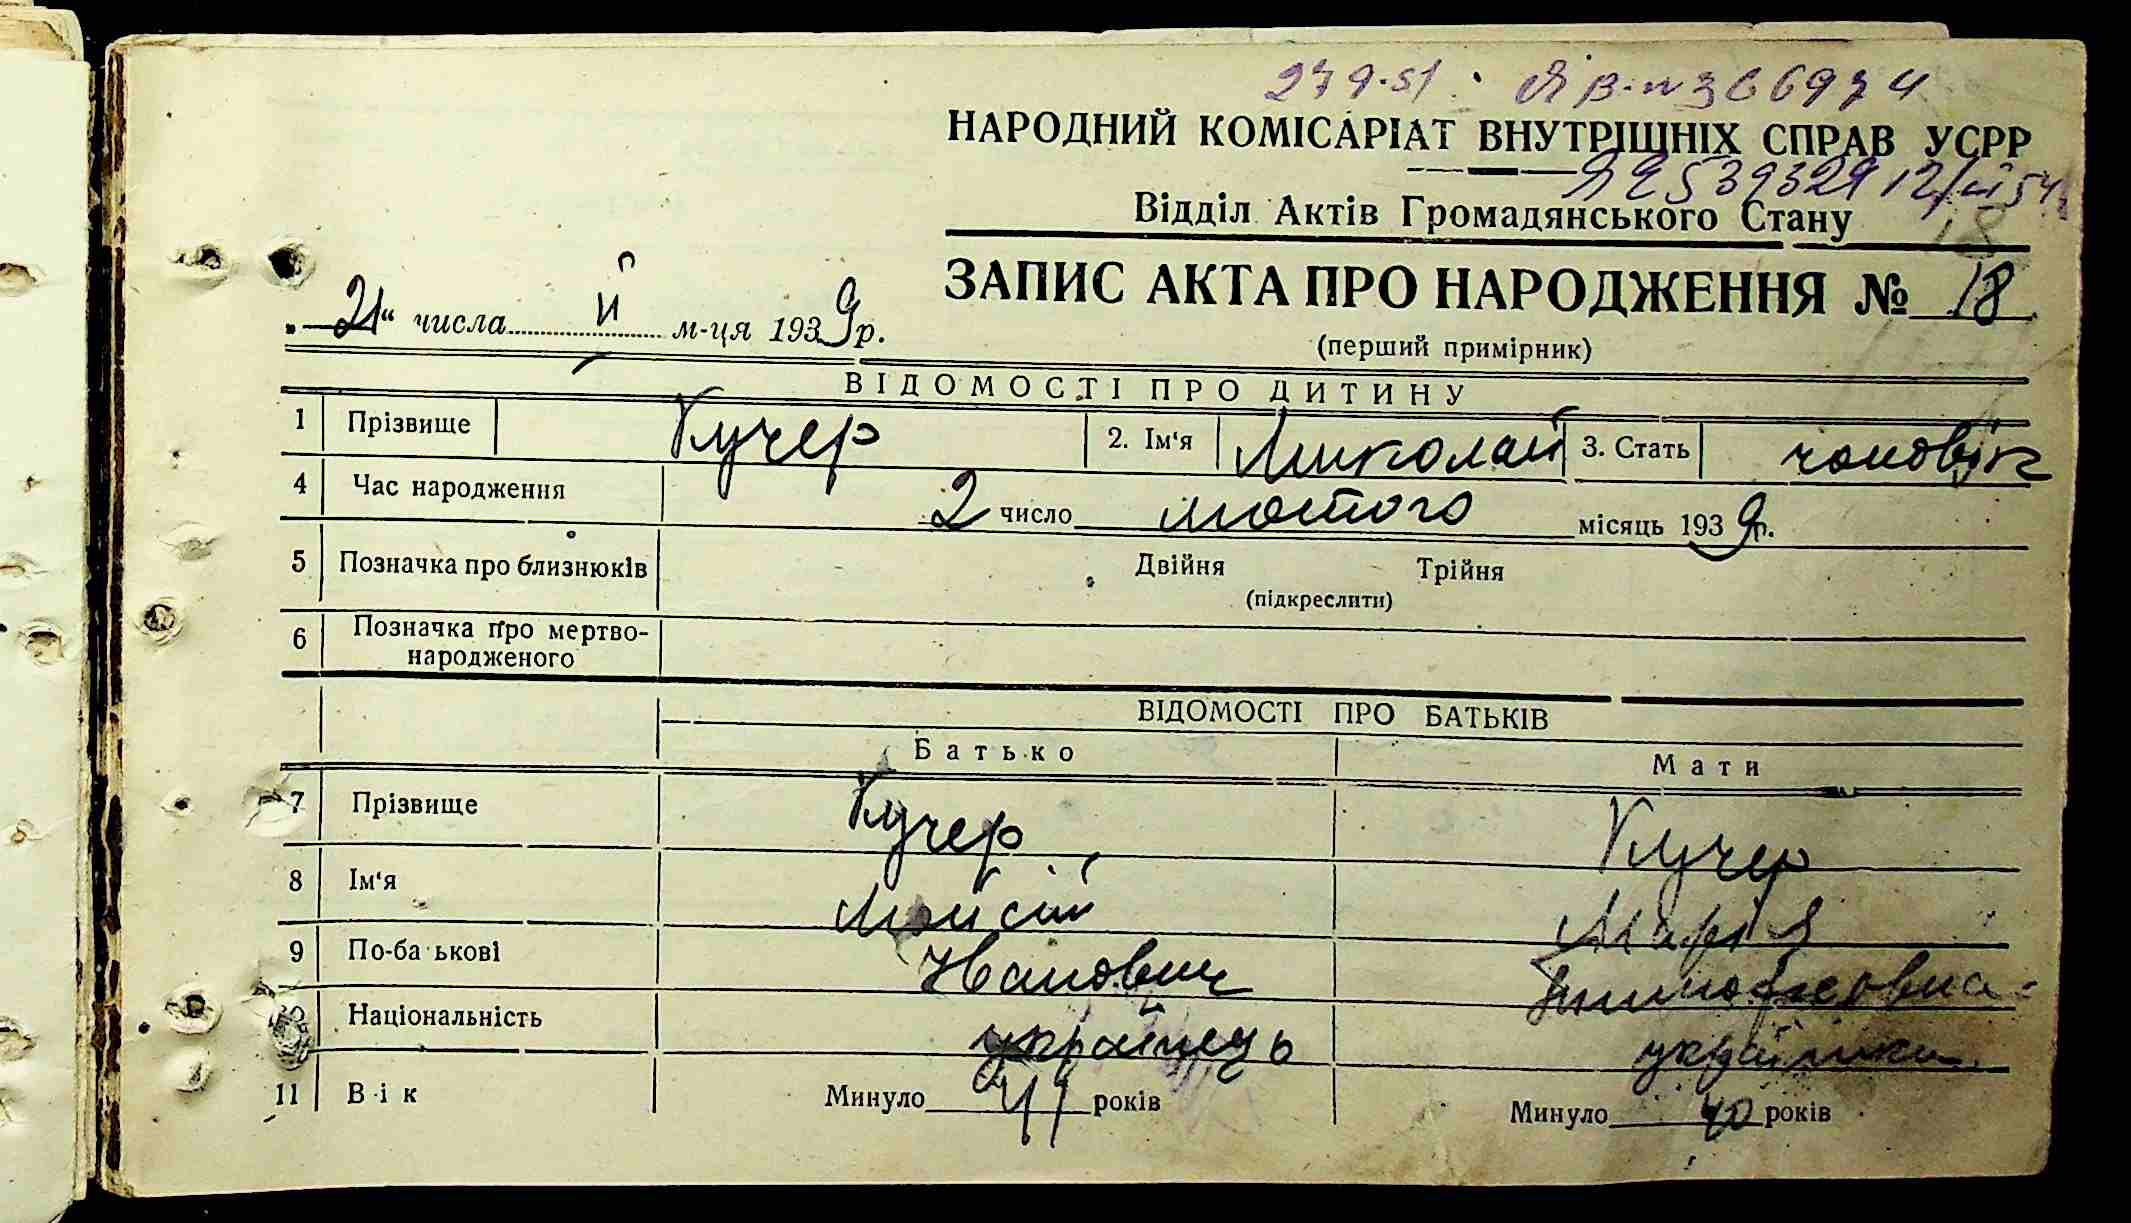 279-51
НАРОДНИЙ КОМІСАРІАТ ВНУТРІШНІХ СПРАВ УСРР
Відділ Актів Громадянського Стану
ЗАПИС АКТА ПРО НАРОДЖЕННЯ № 18
„21“ числа м-ця 1939 р.
(перший примірник)
ВІДОМОСТІ ПРО ДИТИНУ
1 Прізвище Кучер 2. Ім‘я Миколай 3. Стать чоловік
4 Час народження 2 число лютого місяць 1939 р.
5 Позначка про близнюків Двійня Трійня
(підкреслити)
6 Позначка про мертво-
народженого
ВІДОМОСТІ ПРО БАТЬКІВ
Батько Мати
7 Прізвище Кучер Кучер
8 Ім‘я Мойсій Марія
9 По-ба ькові Іванович
Національність українець українка
11 Вік Минуло 41 років Минуло 40 років